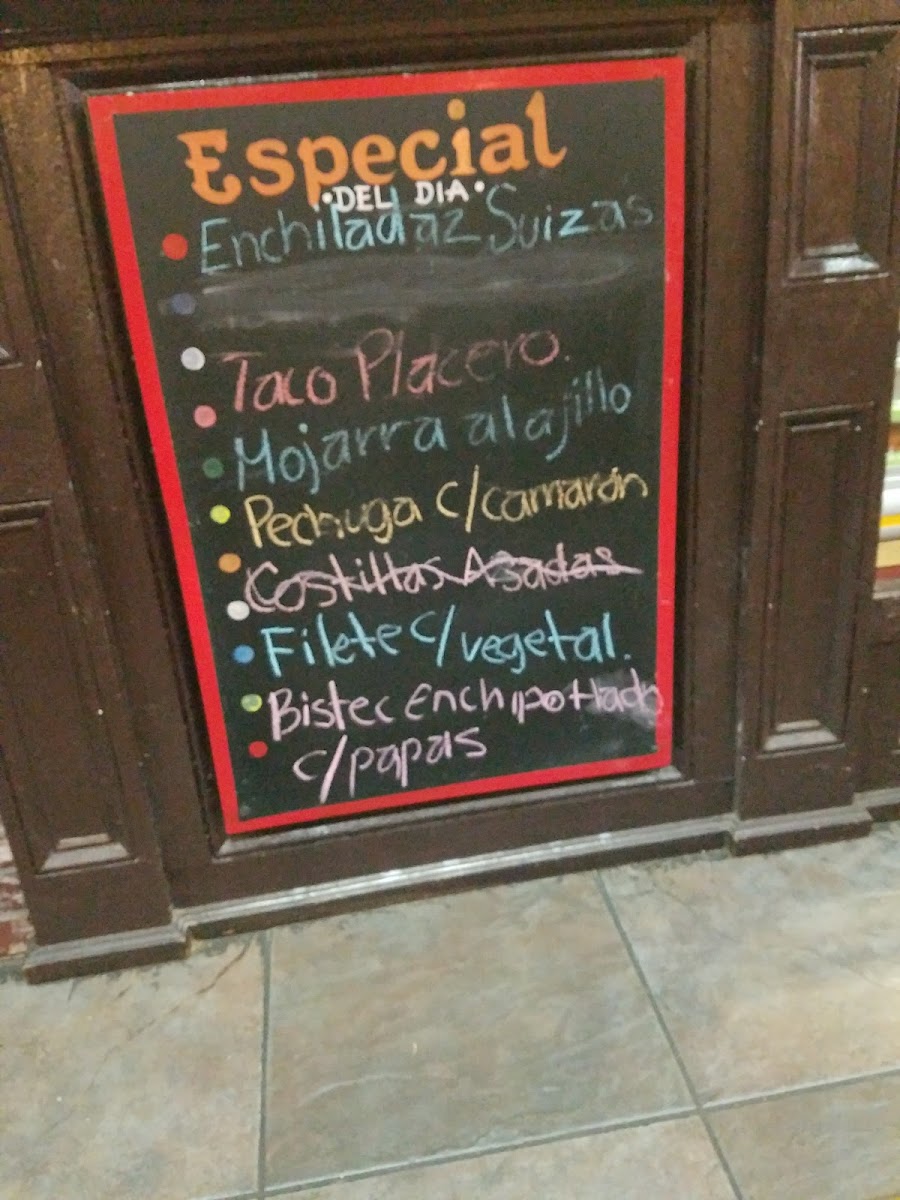 Especial
•DEL DIA•
Enchiladaz Suizas
Taco Placero.
Mojarra al ajillo
Pechuga c/camarón
Costillas Asadas
Filete c/vegetal.
Bistec Enchipotlado
c/papas